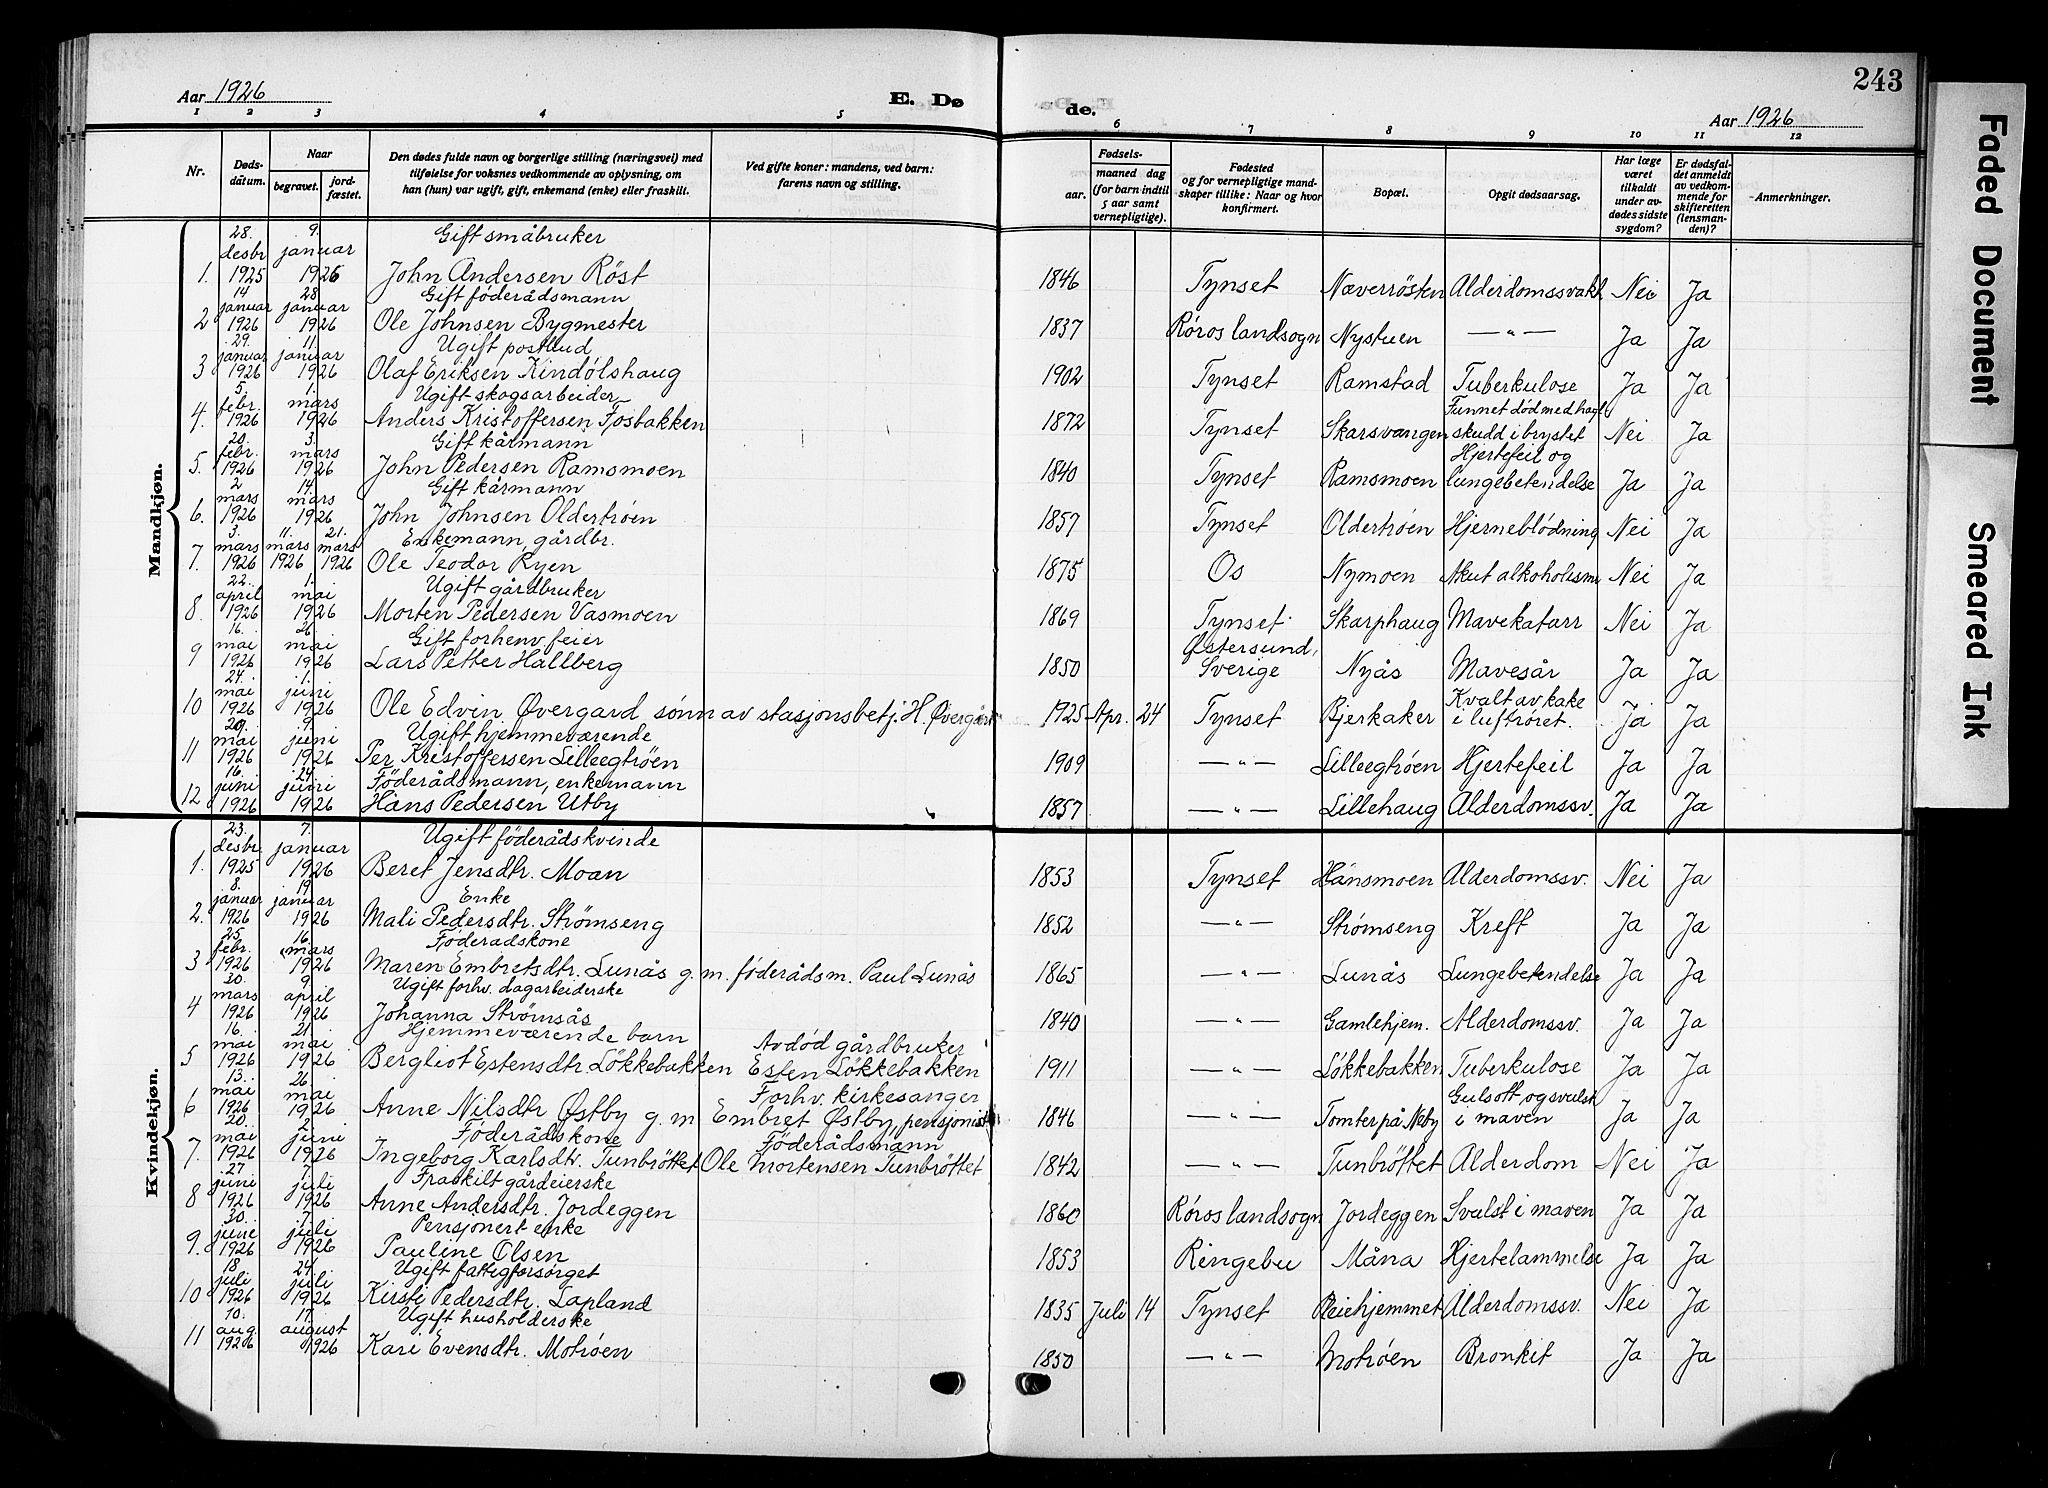 243
Aar 1926
E. Dø
de.
Aar 1926
1 2 3 4 5 6 7 8 9 10 11 12
Nr.
Døds-
datum.
Naar
begravet.
jord-
fæstet.
Den dødes fulde navn og borgerlige stilling (næringsvei) med
tilføielse for voksnes vedkommende av oplysning, om
han (hun) var ugift, gift, enkemand (enke) eller fraskilt.
Ved gifte koner: mandens, ved barn:
farens navn og stilling.
Fødsels-
aar.
maaned dag
(for barn indtil
5 aar samt
vernepligtige).
Fødested
og for vernepligtige mand-
skaper tillike: Naar og hvor
konfirmert.
Bopæl.
Opgit dødsaarsag.
Har læge
været
tilkaldt
under av-
dødes sidste
sygdom?
Er dødsfal-
det anmeldt
av vedkom-
mende for
skifteretten
(lensman-
den)?
Anmerkninger.
Mandkjøn.
28. 9. Gift småbruker
desbr januar
1. 1925 1926 John Andersen Röst 1846 Tynset Næverrösten Alderdomssvakh. Nei Ja
14 28 Gift föderådsmann
januar januar
2 1926 1926 Ole Johnsen Bygmester 1837 Röros landsogn Nystuen —"— Ja Ja
29. 11. Ugift postbud
januar januar
3 1926 1926 Olaf Eriksen Kindölshaug 1902 Tynset Ramstad Tuberkulose Ja Ja
5. 1. Ugift skogsarbeider
febr. mars Funnet död med hagl
4. 1926 1926 Anders Kristoffersen Fjosbakken 1872 Tynset Skarsvangen skudd i brystet Nei Ja
20. 3. Gift kårmann
febr. mars Hjertefeil og
5. 1926 1926 John Pedersen Ramsmoen 1840 Tynset Ramsmoen lungebetendelse Ja Ja
2 14. Gift kårmann
mars mars
6. 1926 1926 John Johnsen Oldertröen 1857 Tynset Oldertröen Hjerneblödning Nei Ja
3. 11. 21. Enkemann, gårdbr.
mars mars mars
7. 1926 1926 1926 Ole Teodor Ryen 1875 Os Nymoen Akut alkoholisme Nei Ja
22. 1. Ugift gårdbruker
april mai
8. 1926 1926 Morten Pedersen Vasmoen 1869 Tynset Skarphaug Mavekatarr Nei Ja
16. 26 Gift forhenv. feier
mai mai Østersund,
9 1926 1926 Lars Petter Hallberg 1850 Sverige Nyås Mavesår Ja Ja
24. 1.
mai juni Kvalt av kake
10 1926 1926 Ole Edvin Øvergard sönn av stasjonsbetj. H. Øvergård 1925 Apr. 24 Tynset Bjerkaker i luftröret. Ja Ja
29. 9. Ugift hjemmeværende
mai juni
11 1926 1926 Per Kristoffersen Lilleegtröen 1909 —"— Lilleegtröen Hjertefeil Ja Ja
16. 24. Föderådsmann, enkemann
juni juni
12 1926 1926 Hans Pedersen Utby 1857 —"— Lillehaug Alderdomssv. Ja Ja
Kvindekjøn.
23. 7. Ugift föderådskvinde
desbr. januar
1. 1925 1926 Beret Jensdtr. Moan 1853 Tynset Hånsmoen Alderdomssv. Nei Ja
8. 19. Enke
januar januar
2. 1926 1926 Mali Pedersdtr. Strömseng 1852 —"— Strømseng Kreft Ja Ja
25. 16. Föderadskone
febr. mars
3 1926 1926 Maren Embretsdtr. Lunås g. m. föderådsm. Paul Lunås 1865 —"— Lunås Lungebetendelse Ja Ja
30. 9 Ugift forhv. dagarbeiderske
mars april
4 1926 1926 Johanna Strömsås 1840 —"— Gamlehjem. Alderdomssv. Ja Ja
16. 21. Hjemmeværende barn Avdöd gårdbruker
mai mai
5 1926 1926 Bergliot Estensdtr. Lökkebakken Esten Lökkebakken 1911 —"— Lökkebakken Tuberkulose Ja Ja
13. 26. Forhv. kirkesanger
mai mai Gulsott og svulst
6 1926 1926 Anne Nilsdtr Østby g. m Embret Østby, pensjonist 1846 —"— Tomter på Neby i maven Ja Ja
20. 2. Föderådskone Föderådsmann
mai juni
7. 1926 1926 Ingeborg Karlsdtr. Tunbröttet Ole Mortensen Tunbröttet 1842 —"— Tunbröttet Alderdom Nei Ja
27 7 Fraskilt gårdeierske
juni juli
8 1926 1926 Anne Andersdtr. Jordeggen 1860 Röros landsogn Jordeggen Svulst i maven Ja Ja
30. 7. Pensjonert enke
juni juli
9. 1926 1926 Pauline Olsen 1853 Ringebu Måna Hjertelammelse Ja Ja
18 24. Ugift fattigforsörget
juli juli
10 1926 1926 Kirsti Pedersdtr. Lapland 1835 Juli 14 Tynset Pleiehjemmet Alderdomssv. Nei Ja
10. 17. Ugift husholderske
aug. august
11 1926 1926 Kari Evensdtr. Motröen 1850 —"— Motröen Bronkit Ja Ja
Faded Document
Smeared Ink